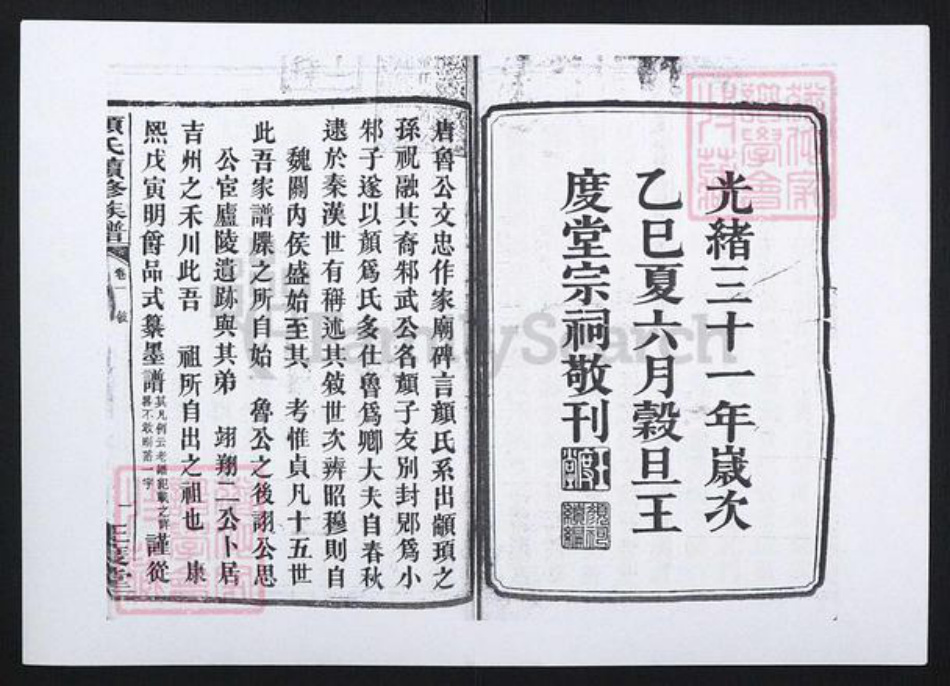 光緒三十一年歲次
乙巳夏六月穀旦王
度堂宗祠敬刊
唐魯公文忠作家廟碑言顏氏系出顓頊之
孫祝融其裔邾武公名顏子友別封郳爲小
邾子遂以顏爲氏多仕魯爲卿大夫自春秋
逮於秦漢世有稱述其敍世次辨昭穆則自
魏關內侯盛始至其 考惟貞凡十五世
此吾家譜牒之所自始 魯公之後詡公思
公宦廬陵遺跡與其弟 翊翔二公卜居
吉州之禾川此吾 祖所自出之祖也 康
熙戊寅明爵品式纂墨譜其凡例云老譜記載之詳畧不敢刪落一字謹從
顏氏續修族譜 卷一 敍
FamilySearch